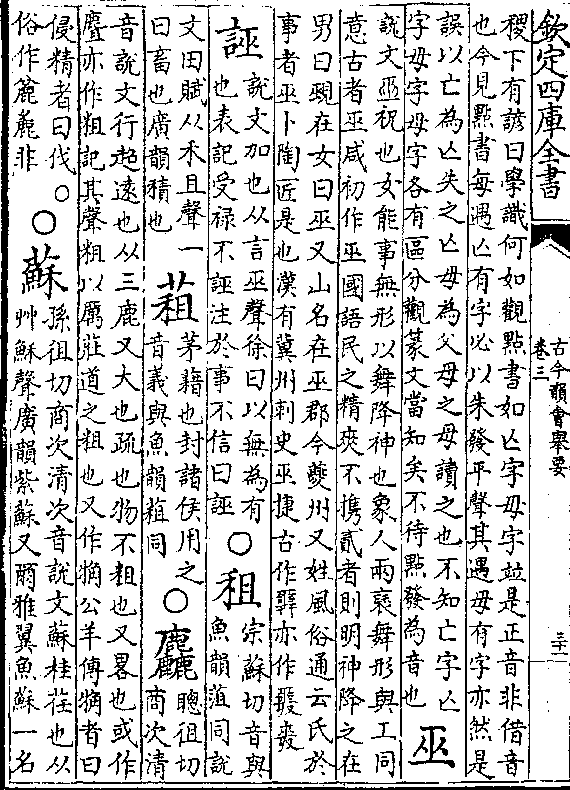 欽定四庫全書
古今韻會舉要
卷三
三十一
稷下有諺曰學識何如觀點書如亡字毋字並是正音非借音
也今見點書每遇亡有字必以朱發平聲其遇毋有字亦然是
誤以亡為亾失之亾毋為父母之母讀之也不知亡字亾
字毋字母字各有區分觀篆文當知矣不待點發為音也 巫
說文巫祝也女能事無形以舞降神也象人兩褎舞形與工同
意古者巫咸初作巫國語民之精爽不攜貳者則明神降之在
男曰覡在女曰巫又山名在巫郡今夔州又姓風俗通云氏於
事者巫卜陶匠是也漢有冀州刺史巫捷古作𢍮亦作
誣 說文加也从言巫聲徐曰以無為有
也表記受祿不誣注於事不信曰誣 ○租 宗蘇切音與
魚韻蒩同說
文田賦从禾且聲一
曰畜也廣韻積也 蒩 茅藉也封諸侯用之
音義與魚韻菹同 ○麤 聰徂切
商次清
音說文行超遠也从三鹿又大也疏也物不粗也又畧也或作
麆亦作粗記其聲粗以厲莊道之粗也又作觕公羊傳觕者曰
侵精者曰伐○
俗作麄麁非 ○蘇 孫徂切商次清次音說文蘇桂荏也从
艸穌聲廣韻紫蘇又爾雅翼魚蘇一名